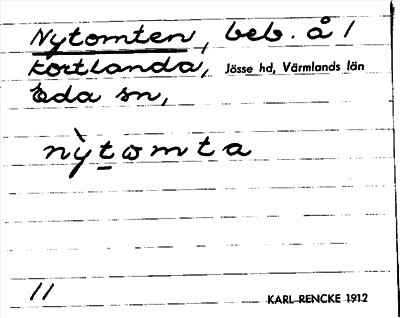 Nytomten, beb. å 1
Kortlanda, Jösse hd, Värmlands län
Eda sn,
nỳt̠ωmta
11
KARL RENCKE 1912